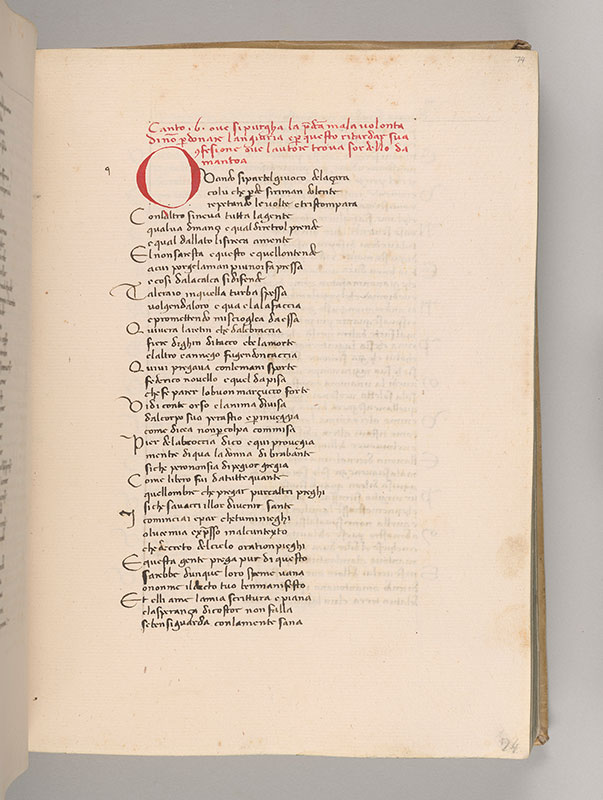 74
Canto .6. oue si purgha la p̄dc̄a mala uolonta
di nō p̄donare la ngiuria e per questo ritardar sua
9fesione due lautore troua sordello da
mantoa
Quando siparte lgiuoco delaçara
colu che p̄de si riman dolente
repetando leuolte e tristompara
Conlaltro sineua tutta lagente
qualua dinançi e qual dirietrol prende
e qual dallato lisireca amente
El nonsaresta e questo e quellontende
acui porge laman piunoi fa pressa
e cosi dalacalca sidifende
Tal eraio inquella turba spessa
uolgendaloro e qua e la lafaccia
e promettendo mi sciogliea daessa
Quiuera laretin che dalebraccia
fiere dighin ditacco ebe lamorte
elaltro eannego fugendoncaccia
Quiui pregaua conlemani sporte
federico nouello e quel dapisa
che fe parer lobuon marçucco forte
Vidi conte orso e lanima diuisa
dalcorpo suo perastio e p̄inueggia
come dicea nonp̄ colpa commisa
Pier dela broccia dico e qui prouegia
mentre di qua la donna di brabante
si che perononsia di pegior gregia
Come libero fui datutte quante
quellombre che pregar pur caltri preghi
si che sauacci illor diuenir sante
I cominciai epar chetuminieghi
o luce mia expresso inalcuntexto
che decreto delcielo oration pieghi
E questa gente priega pur di questo
sarebbe dunque loro speme uana
o nonme ildecto tuo benmanifesto
Et elli ame lamia scrittura e piana
elasperança di costor non falla
se ben siguarda conlamente sana
74